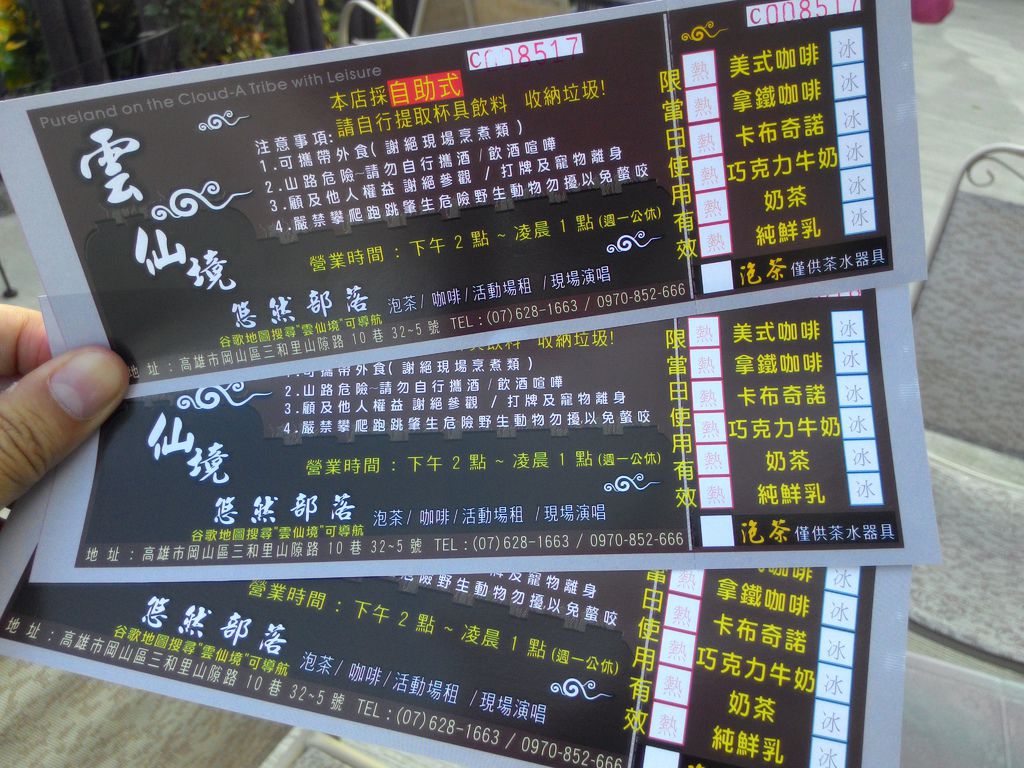 Pureland on the Cloud-A Tribe with Leisure
C008517
本店採自助式
請自行提取杯具飲料 收納垃圾!
雲仙境
注意事項:
1.可攜帶外食(謝絕現場烹煮類)
2.山路危險~請勿自行攜酒/飲酒喧嘩
3.顧及他人權益 謝絕參觀 / 打牌及寵物離身
4.嚴禁攀爬跑跳肇生危險野生動物勿擾以免螫咬
營業時間:下午2點~凌晨1點(週一公休)
悠然部落 泡茶/咖啡/活動場租/現場演唱
谷歌地圖搜尋"雲仙境"可導航
地址:高雄市岡山區三和里山隙路10巷32~5號 TEL:(07)628-1663 / 0970-852-666
限當日使用有效
C008517
熱 美式咖啡 冰
熱 拿鐵咖啡 冰
熱 卡布奇諾 冰
熱 巧克力牛奶 冰
熱 奶茶 冰
熱 純鮮乳 冰
泡茶 僅供茶水器具
飲料 收納垃圾!
可攜帶外食(謝絕現場烹煮類)
2.山路危險~請勿自行攜酒/飲酒喧嘩
3.顧及他人權益 謝絕參觀 / 打牌及寵物離身
4.嚴禁攀爬跑跳肇生危險野生動物勿擾以免螫咬
仙境
營業時間:下午2點~凌晨1點(週一公休)
悠然部落 泡茶/咖啡/活動場租/現場演唱
谷歌地圖搜尋"雲仙境"可導航
地址:高雄市岡山區三和里山隙路10巷32~5號 TEL:(07)628-1663 / 0970-852-666
限當日使用有效
熱 美式咖啡 冰
熱 拿鐵咖啡 冰
熱 卡布奇諾 冰
熱 巧克力牛奶 冰
熱 奶茶 冰
熱 純鮮乳 冰
泡茶 僅供茶水器具
牌及寵物離身
危險野生動物勿擾以免螫咬
營業時間:下午2點~凌晨1點(週一公休)
悠然部落 泡茶/咖啡/活動場租/現場演唱
谷歌地圖搜尋"雲仙境"可導航
地址:高雄市岡山區三和里山隙路10巷32~5號 TEL:(07)628-1663 / 0970-852-666
當日使用有效
咖啡 冰
熱 拿鐵咖啡 冰
熱 卡布奇諾 冰
熱 巧克力牛奶 冰
熱 奶茶 冰
熱 純鮮乳 冰